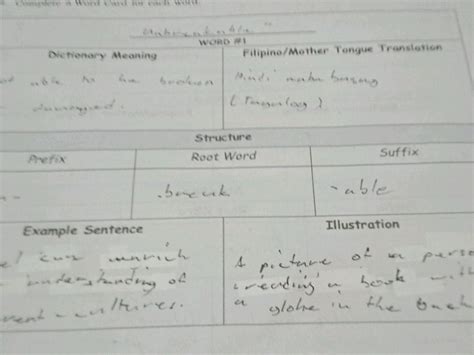 Complete a Word Card for each word.
Unbreakable
WORD #1
Dictionary Meaning
Filipino/Mother Tongue Translation
able to be broken
Hindi
damaged.
(Tagalog)
Structure
Prefix
Root Word
Suffix
break
-able
Example Sentence
Illustration
can enrich
A picture of a perso
understanding of
reading a book with
cultures.
a globe in the back